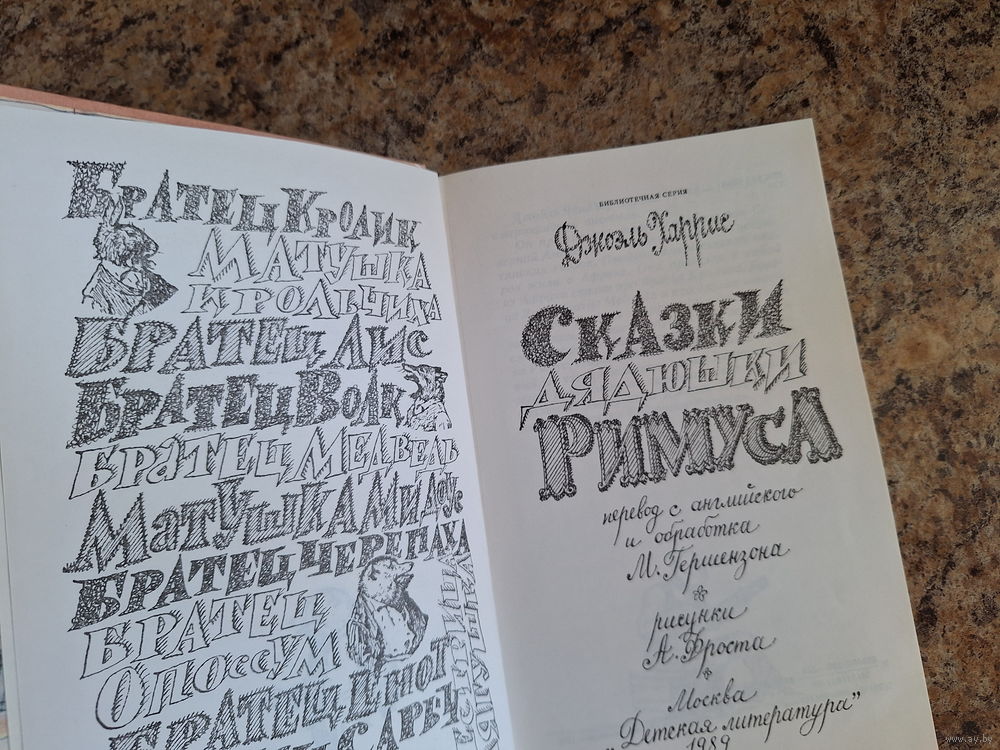 Братец Кролик
Матушка
Крольчиха
Братец Лис
Братец Волк
Братец Медведь
Матушка Мидоус
Братец Черепаха
Братец
Опоссум
Братец Енот
Сарыч
Сестрица
БИБЛИОТЕЧНАЯ СЕРИЯ
Джоэль Харрис
Сказки
дядюшки
Римуса
перевод с английского
и обработка
М. Гершензона
рисунки
А. Фроста
Москва
„Детская литература”
1989
www.ay.by